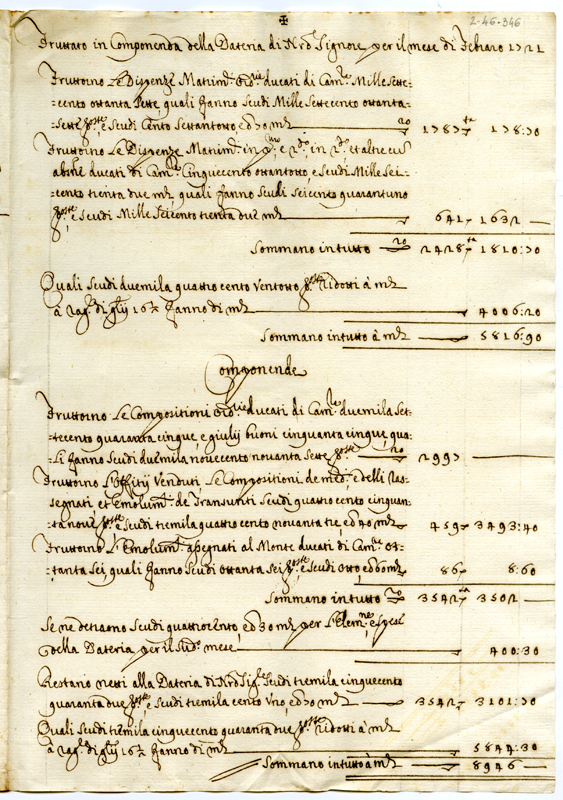 ✠
2-46-346
Fruttato in Componenda della Dateria di Nrõ Signore per il mese di Febraro 1721
Fruttorno Le Dispenze Matrim: ducati di Cam: Mille sette-
-cento ottanta sette quali fanno scudi Mille settecento ottanta-
sette, e scudi Cento settantotto, ed 30 mta 1787 178:30
Fruttorno Le Dispenze Matrim: in p:mo, e 2:do, in 2:do, et altre cum
absne ducati di Cam: Cinquecento ottantotto, e scudi Mille sei-
-cento trenta due mta quali fanno scudi seicento quarantuno
e scudi Mille seicento trenta due mta 641 1632 —
Sommano in tutto 2428 1810:30
Quali scudi duemila quattro cento ventotto ridotti à mta
à rag: di giulij 16½ fanno di mta 4006:20
Sommano in tutto à mta 5816:90
Componende
Fruttorno Le Compositioni ducati di Cam: duemila set-
-tecento quaranta cinque, e giulij buoni cinquanta cinque, qua-
-li fanno scudi duemila novecento novanta sette 2997 —
Fruttorno L'Offitij Venduti, Le Compositioni de med:, e delli ras-
segnati, et Emolum: de Transunti scudi quattro cento cinquan-
-ta nove, e scudi tremila quattro cento novanta tre, ed 40 mta 459 3493:40
Fruttorno L'Emolum: assegnati al Monte ducati di Cam: ot-
-tanta sei, quali fanno scudi ottanta sei, e scudi otto, ed 60 mta 86 8:60
Sommano in tutto 3542 3502 —
Se ne detraono scudi quattrocento, ed 30 mta per L'Elem:ne, e spese
della Dateria per il sud: mese 400:30
Restano netti alla Dateria di Nrõ Sig:re scudi tremila cinquecento
quaranta due, e scudi tremila cento uno, ed 70 mta 3542 3101:70
Quali scudi tremila cinquecento quaranta due ridotti à mta
à rag: di giulij 16½ fanno di mta 5844:30
Sommano in tutto à mta 8946 —